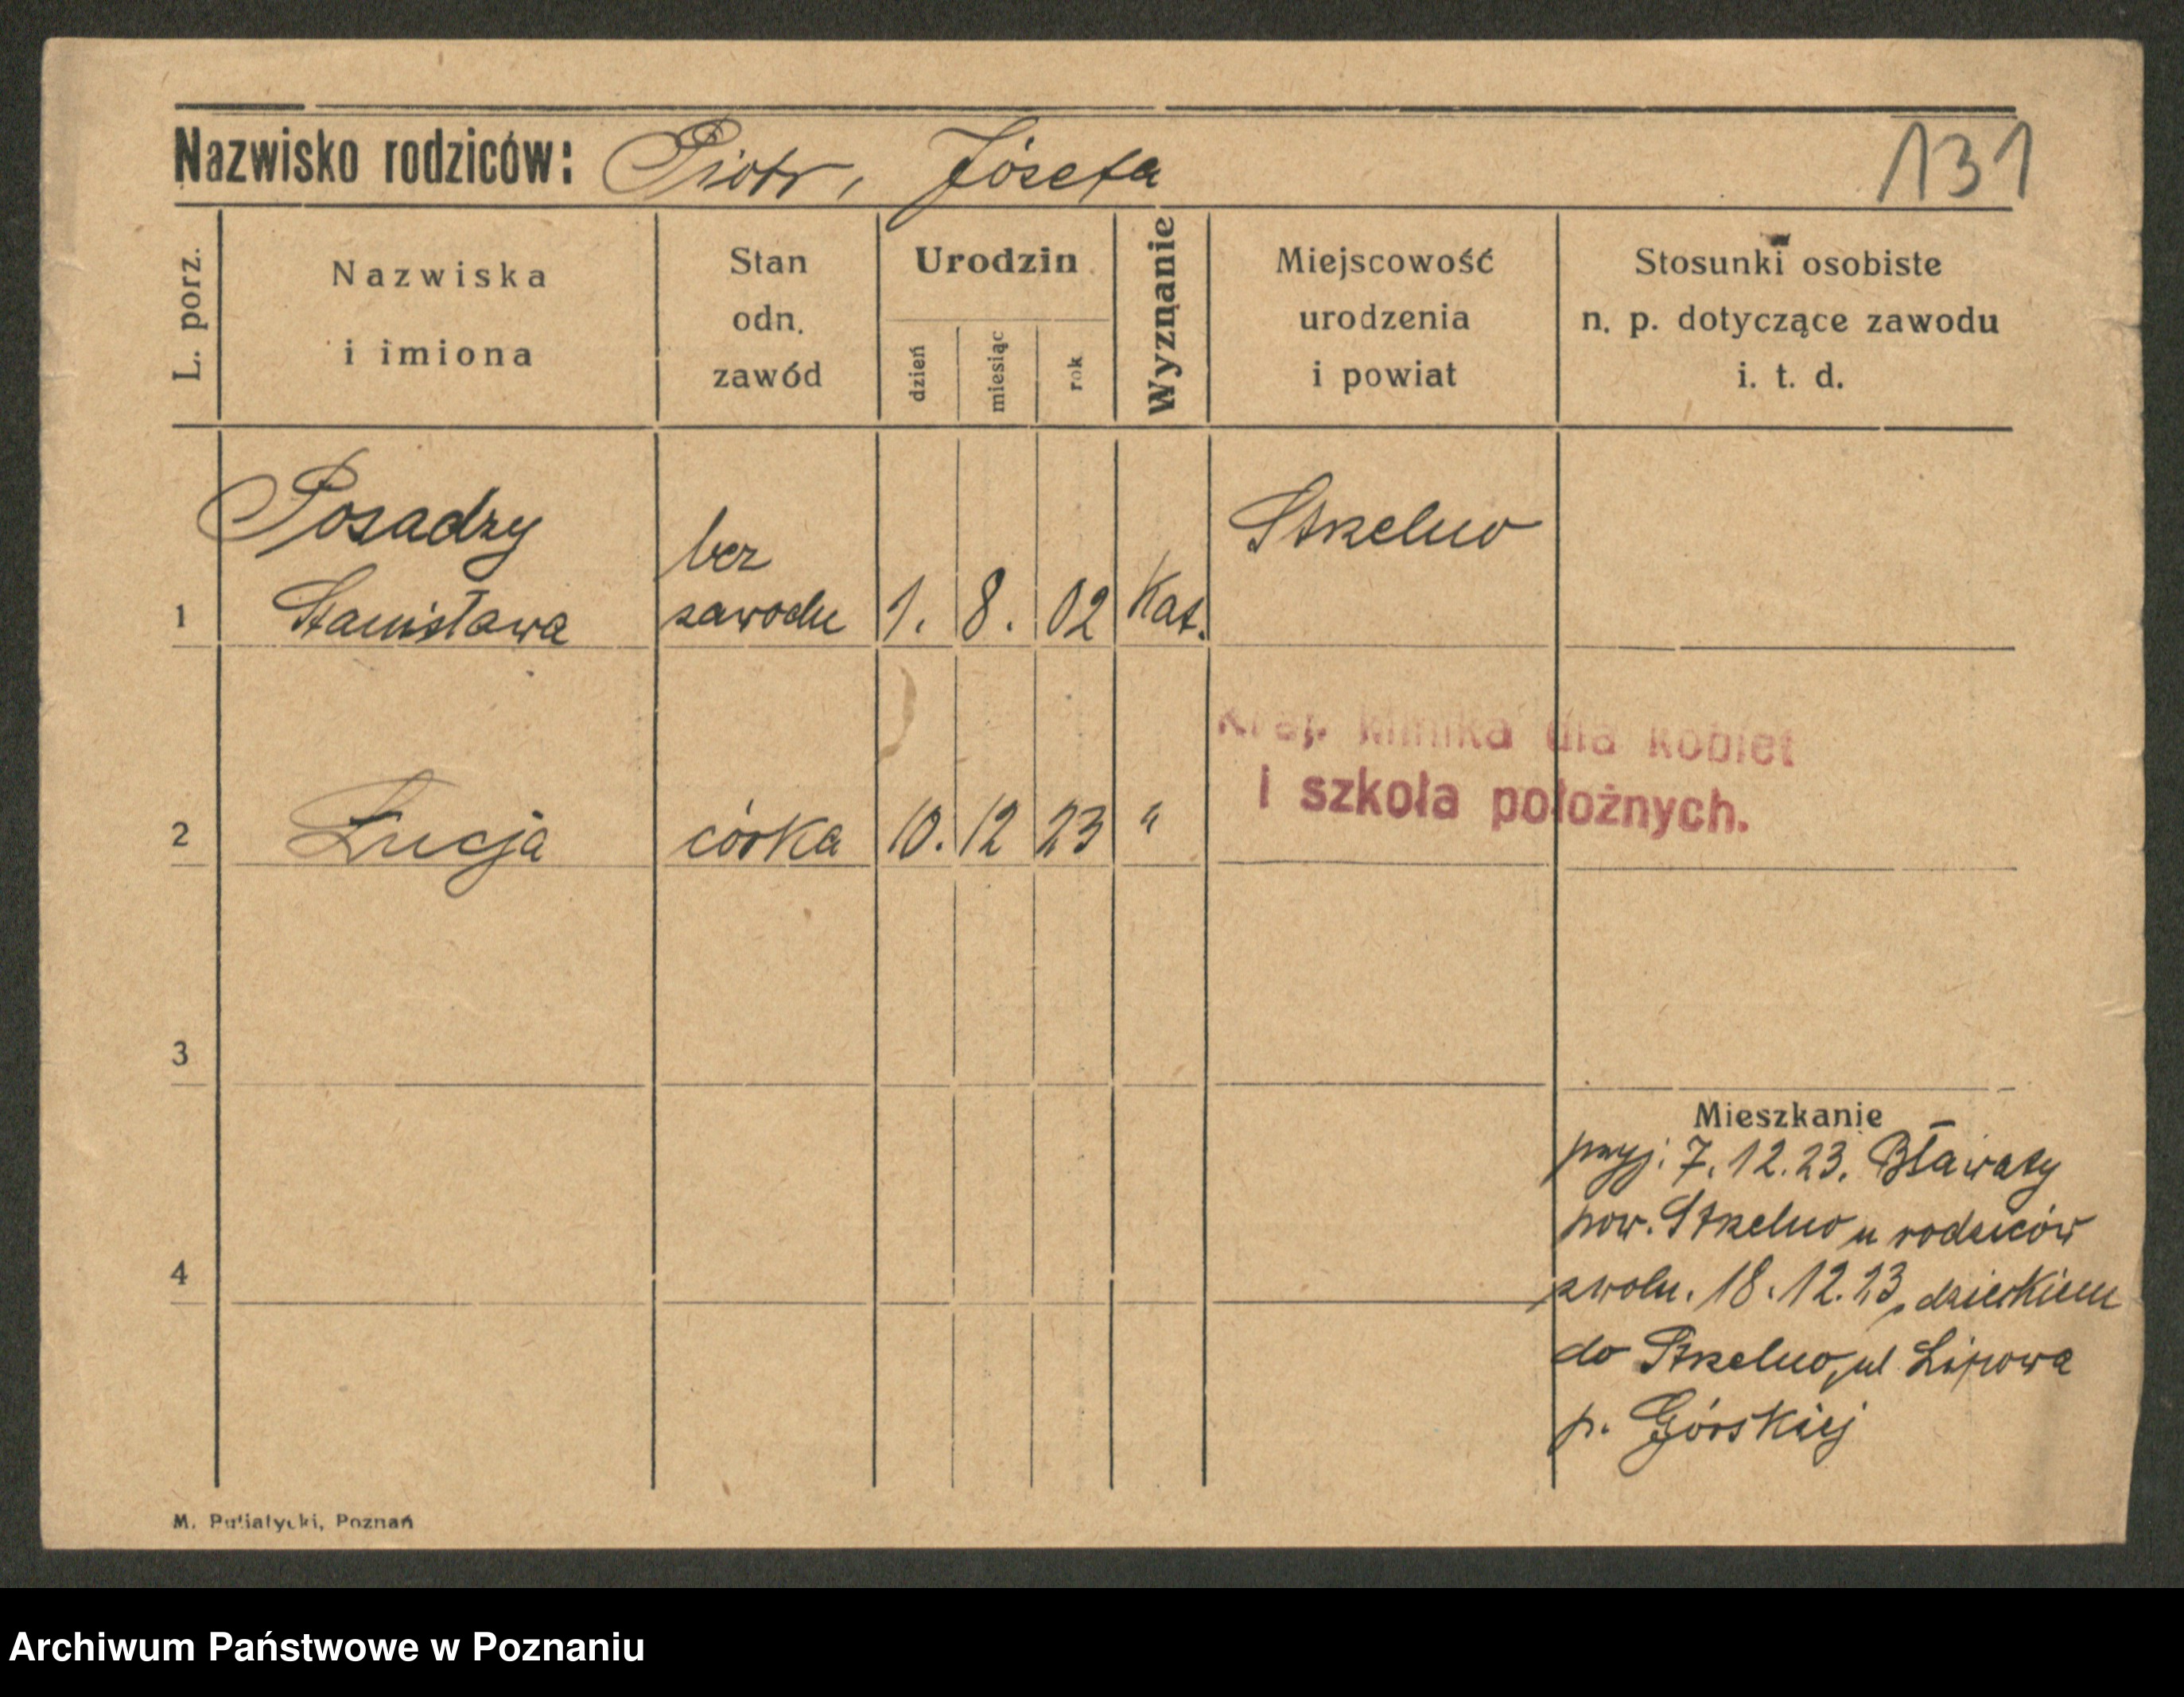 Nazwisko rodziców: Piotr, Józefa
131
L. porz.
Nazwiska i imiona
Stan odn. zawód
Urodzin
dzień
miesiąc
rok
Wyznanie
Miejscowość urodzenia i powiat
Stosunki osobiste n. p. dotyczące zawodu i. t. d.
Posadzy
bez
Strzelno
1 Stanisława zawodu 1. 8. 02 Kat.
Kraj. klinika dla kobiet
i szkoła położnych.
2 Łucja córka 10. 12 23 "
3
Mieszkanie
przyj. 7.12.23. Bławaty
pow. Strzelno u rodziców
4
zwoln. 18.12.23, dzieckiem
do Strzelno, ul Lipowa
p. Górskiej
M. Putiatycki, Poznań
Archiwum Państwowe w Poznaniu